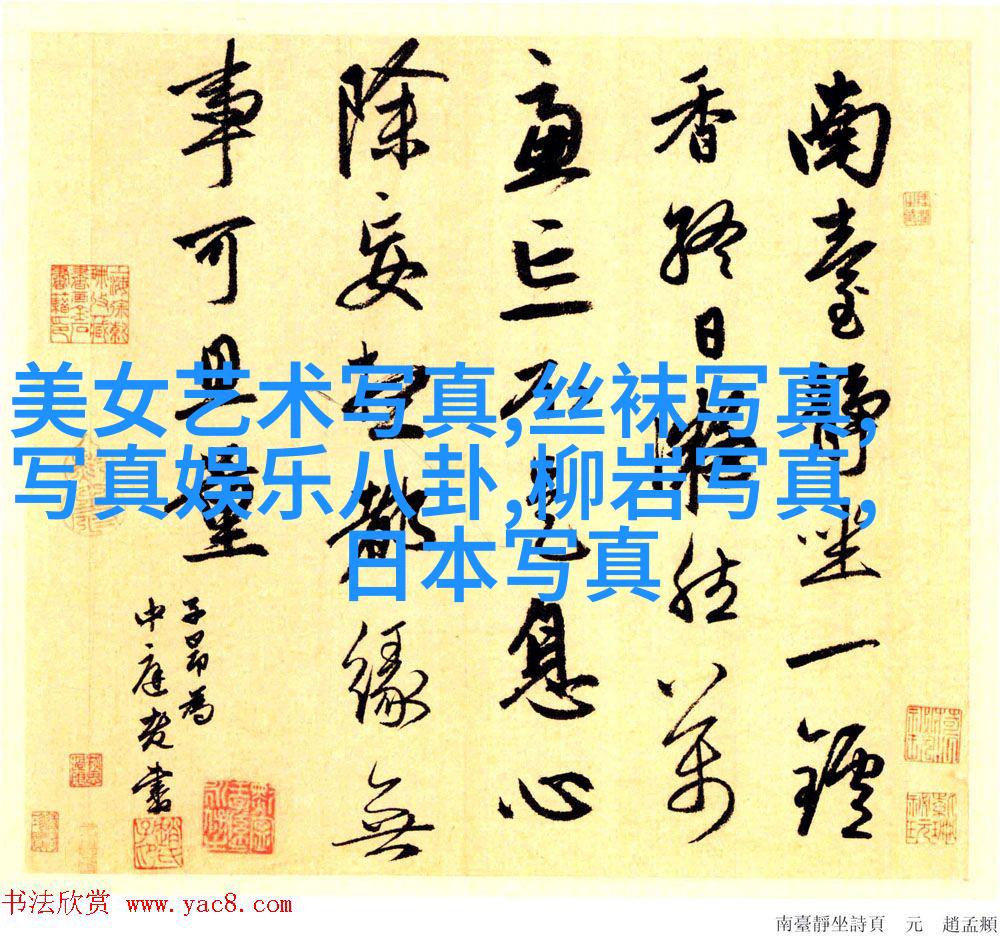 南臺靜坐一鑪
香終日凝然萬
慮亡不是息心
除妄想都緣無
事可思量
子昂為
中庭老書
美女艺术写真,丝袜写真,
写真娱乐八卦,柳岩写真,
日本写真
书法欣赏 www.yac8.com
南臺靜坐詩頁 元 趙孟頫